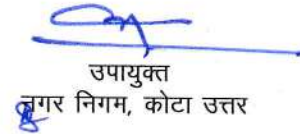 उपायुक्त
नगर निगम, कोटा उत्तर